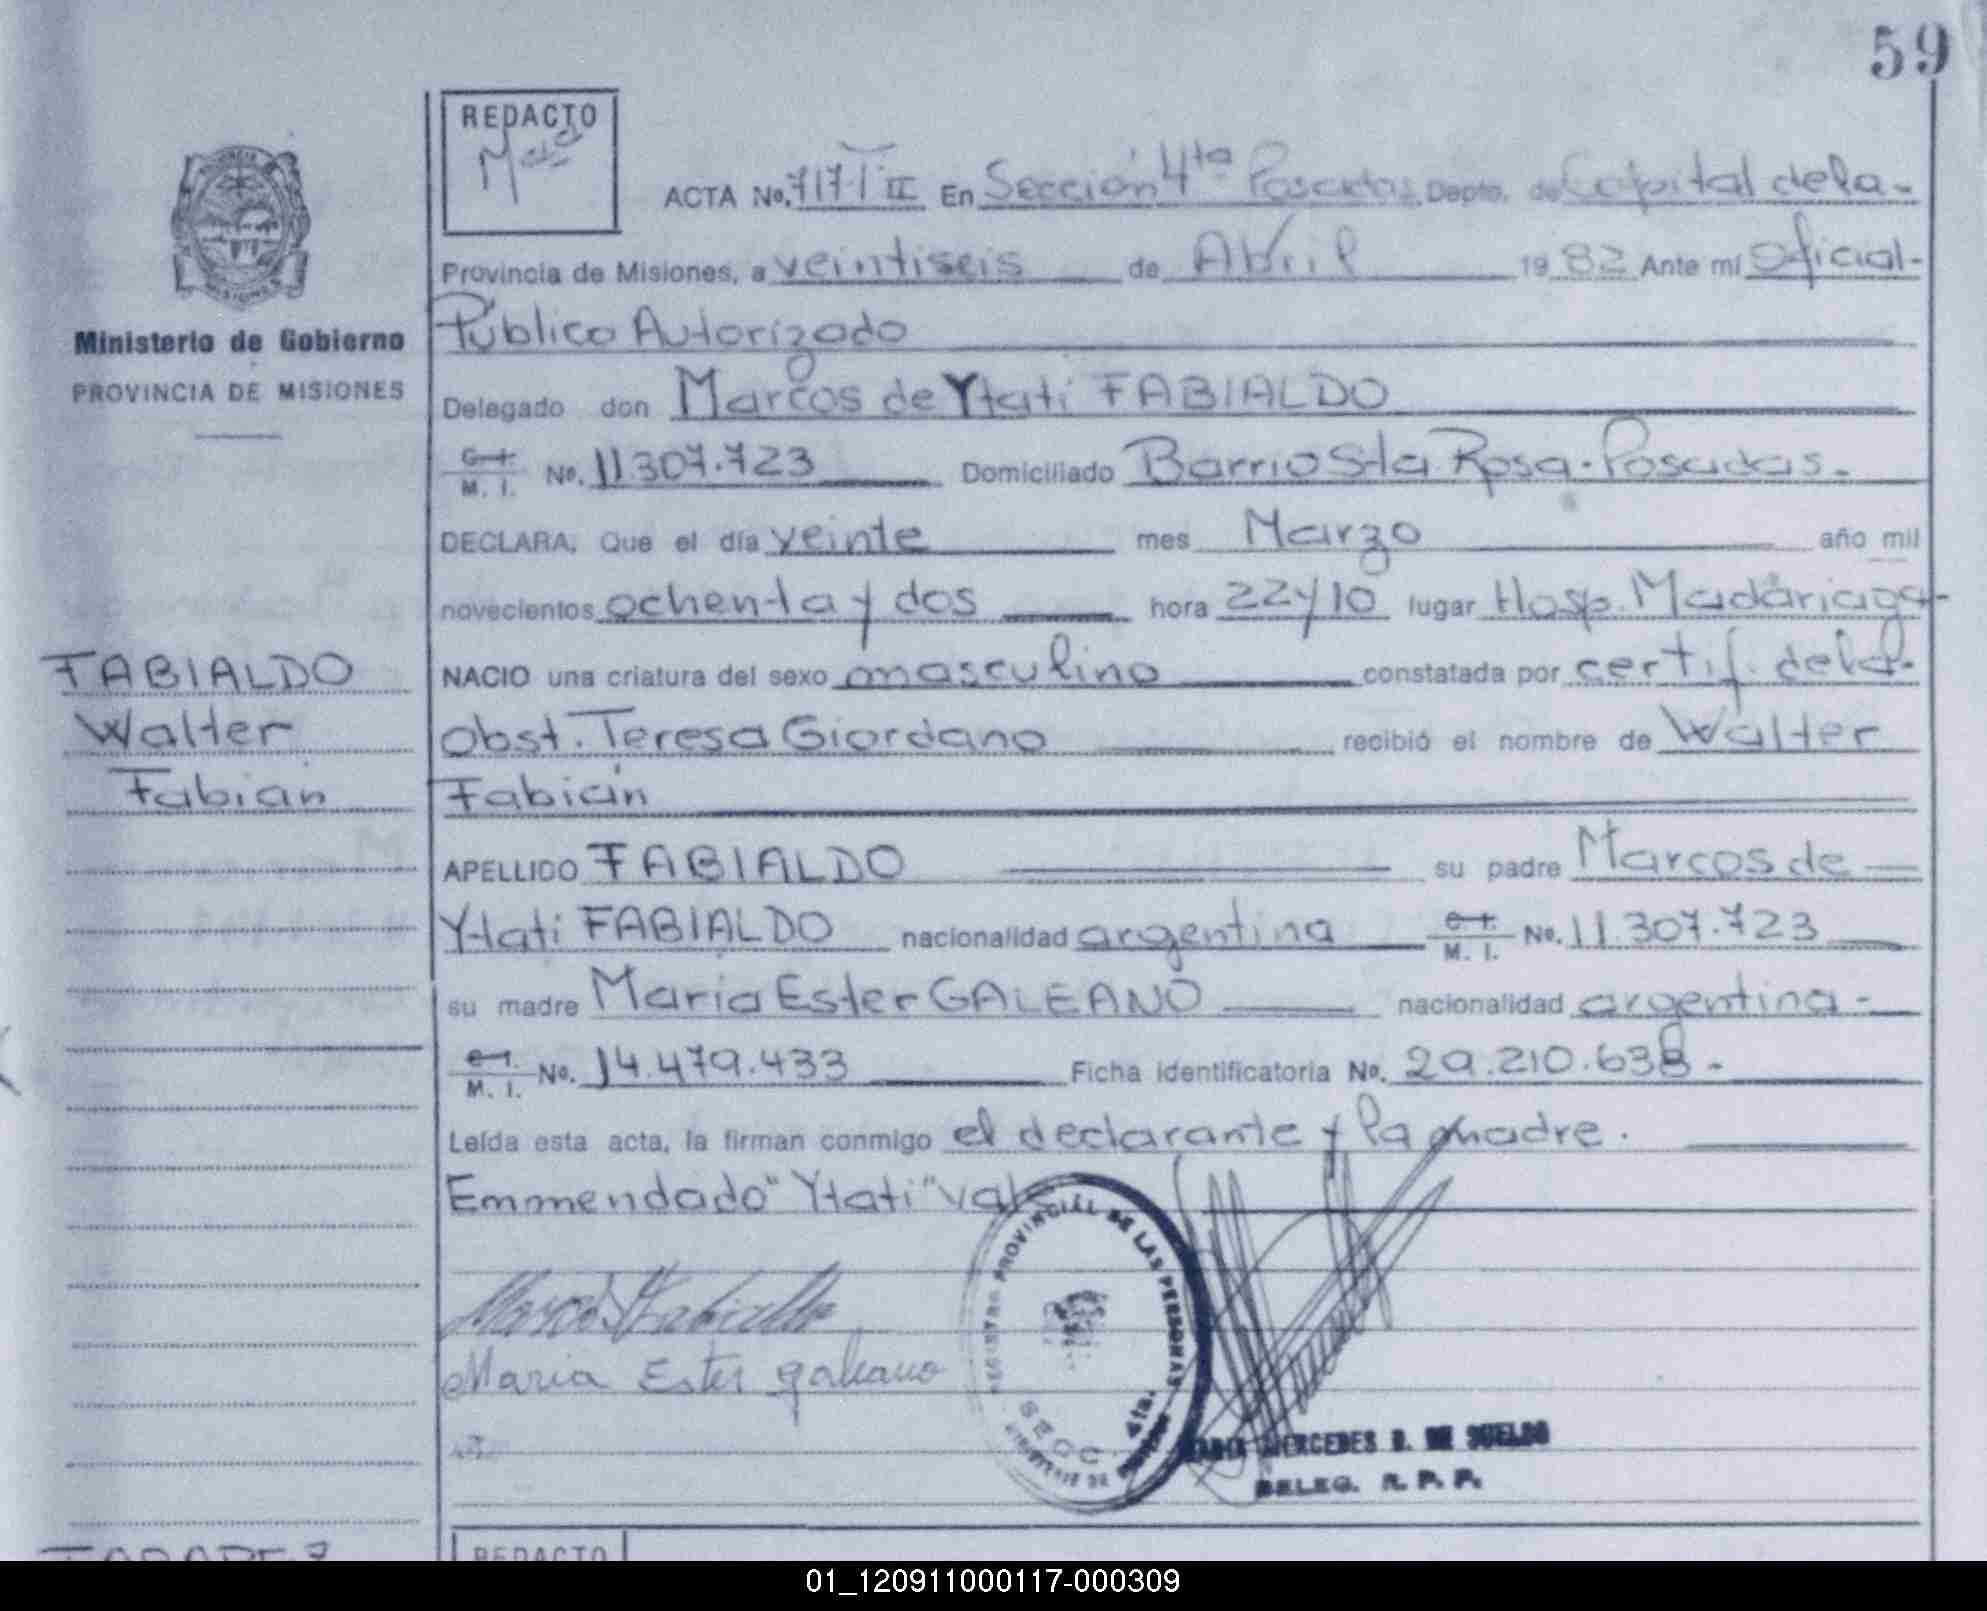 59
REDACTO
ACTA No. 717 T II En Sección 4ta Posadas Depto. de Capital de la-
Provincia de Misiones, a veintiseis de Abril 1982 Ante mí Oficial-
Público Autorizado
Ministerio de Gobierno
PROVINCIA DE MISIONES
Delegado don Marcos de Ytatí FABIALDO
M. I. No. 11.307.723 Domiciliado Barrio Sta Rosa-Posadas.-
DECLARA, Que el día veinte mes Marzo año mil
novecientos ochenta y dos hora 22 y 10 lugar Hosp. Madariaga-
FABIALDO
Walter
Fabián
NACIO una criatura del sexo masculino constatada por certif. de la-
Obst. Teresa Giordano recibió el nombre de Walter
Fabián
APELLIDO FABIALDO su padre Marcos de
Ytati FABIALDO nacionalidad argentina M. I. No. 11.307.723
su madre Maria Ester GALEANO nacionalidad argentina-
M. I. No. 14.479.433 Ficha identificatoria No. 29.210.638.-
Leída esta acta, la firman conmigo el declarante y la madre.
Emmendado "Ytati" vale
Marcos Fabialdo
Maria Ester galeano
REGISTRO PROVINCIAL DE LAS PERSONAS
SECC. 4ta.
MERCEDES D. DE SUELDO
DELEG. R. P. P.
REDACTO
01_120911000117-000309